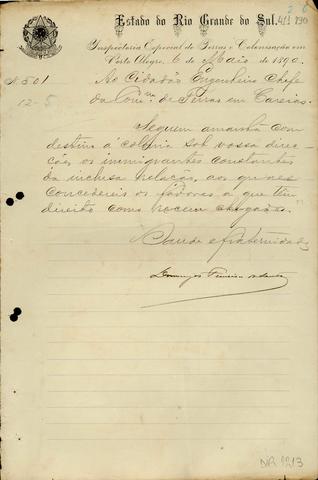 Estado do Rio Grande do Sul.
Inspectoria Especial de Terras e Colonisação em
Porto Alegre, 6 de Maio de 1890.
N. 501
12-5
Ao Cidadão Engenheiro Chefe
da Com. de Terras em Caxias.
Seguem amanhã com
destino á colonia sob vossa direc-
ção, os immigrantes constantes
da inclusa relação, aos quaes
concedereis os favores a que têm
direito como recem chegados.
Saude e fraternidade
Domingos